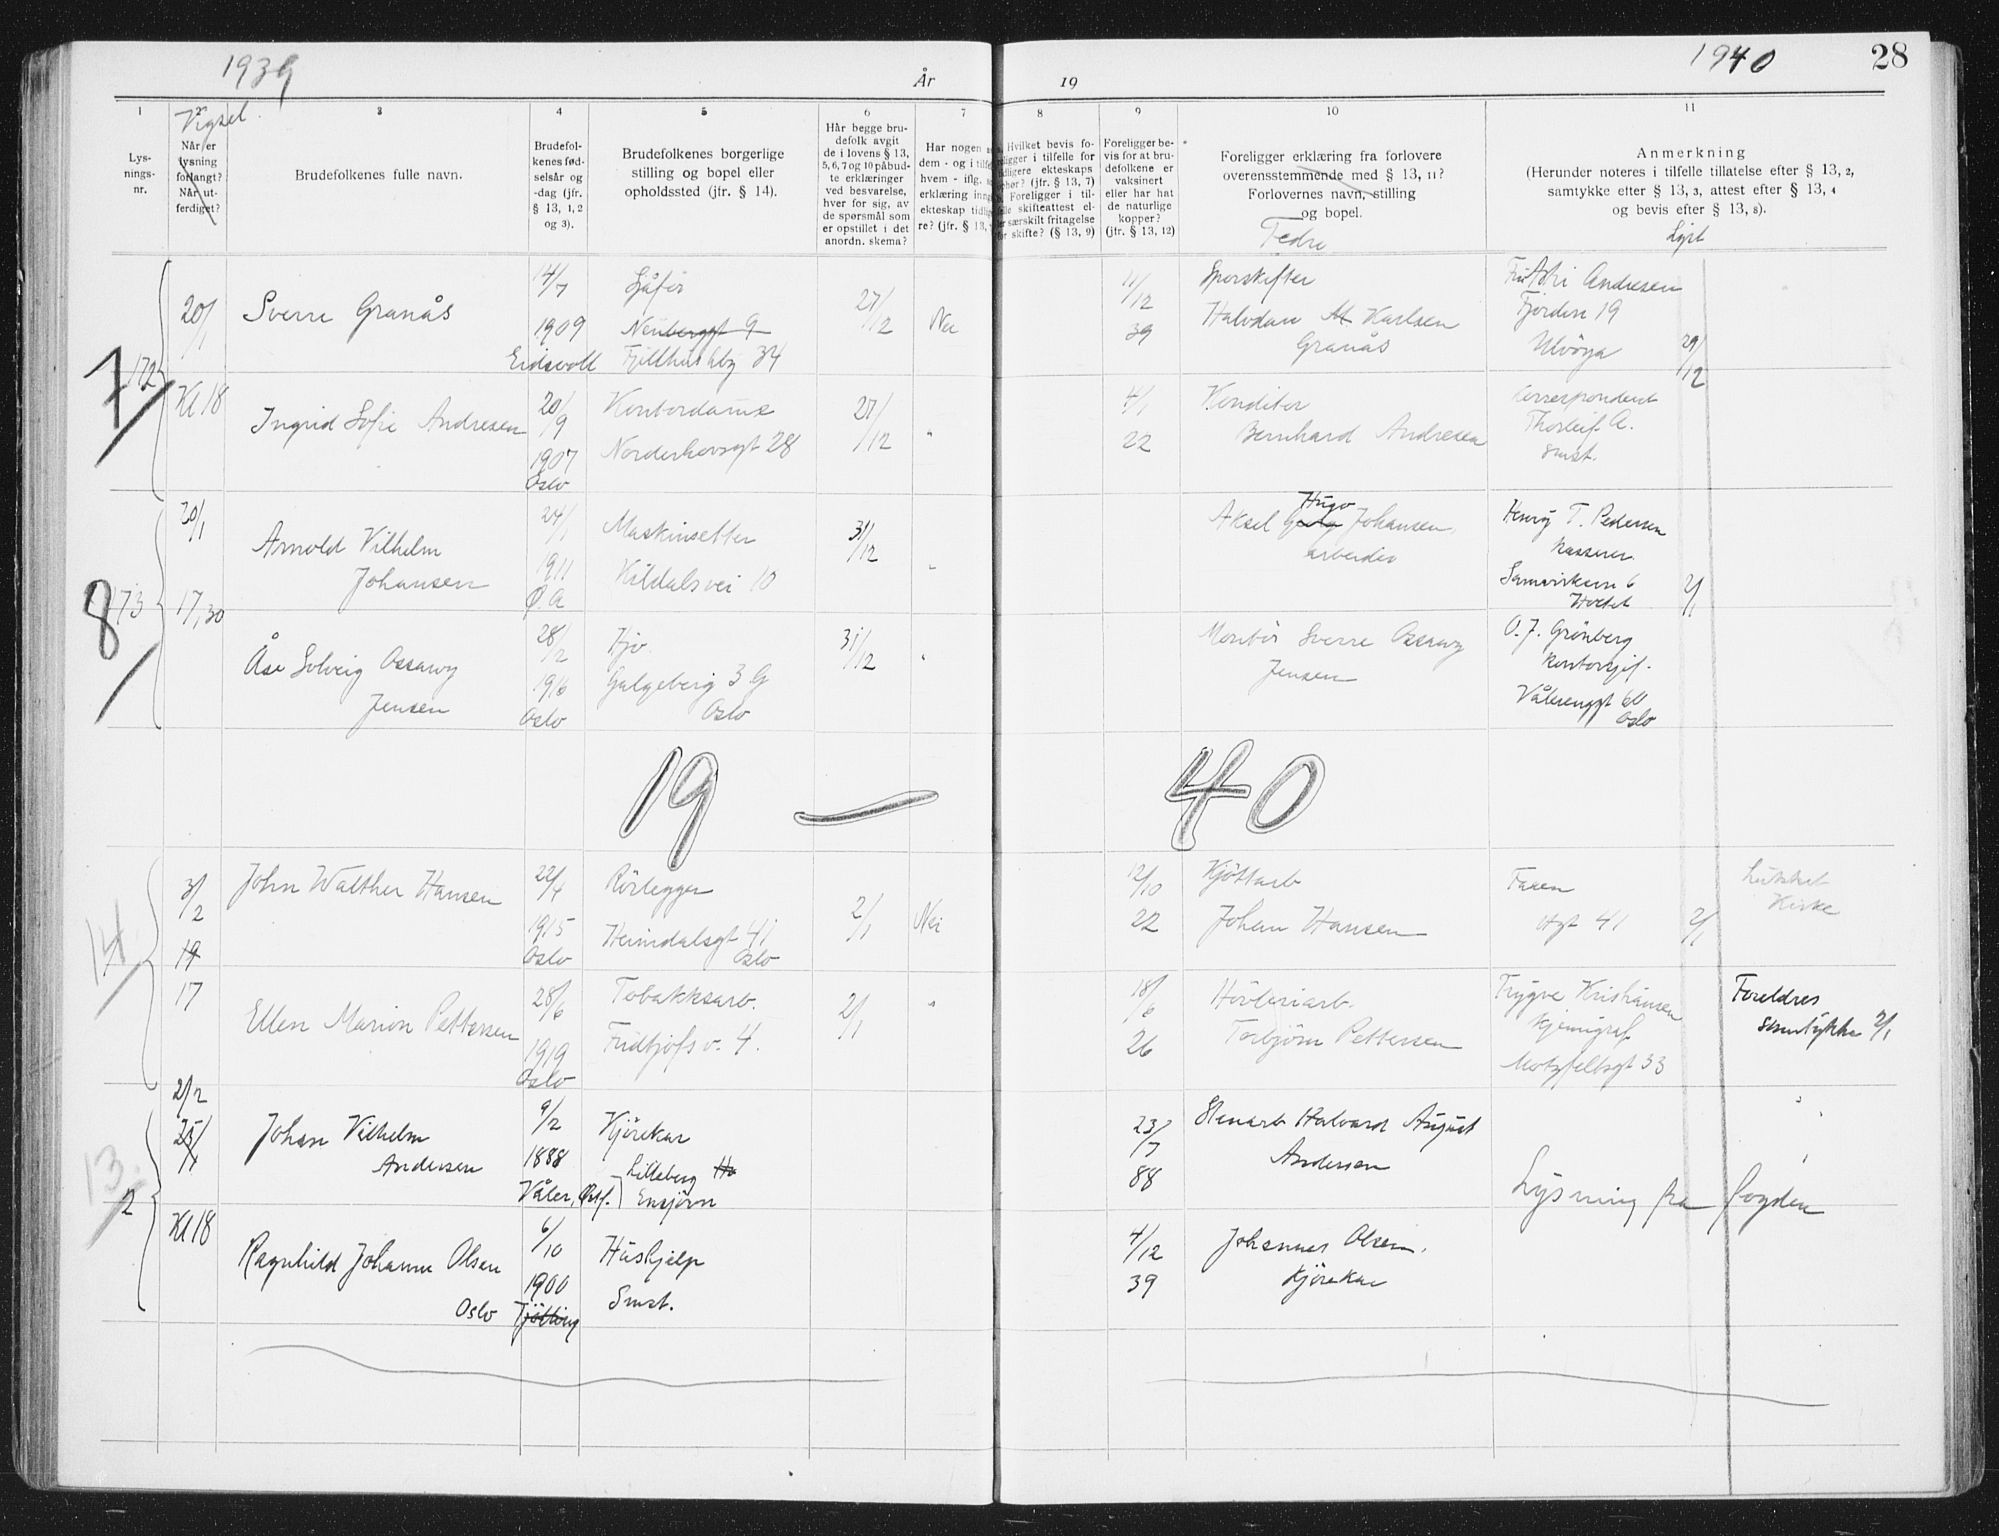 1939
År
19
1940
28
1
2
3
4
5
6
7
8
9
10
11
Vigsel
Lys-
nings-
nr.
Når er
lysning
forlangt?
Når ut-
ferdiget?
Brudefolkenes fulle navn.
Brudefol-
kenes fød-
selsår og
-dag (jfr.
§ 13, 1, 2
og 3).
Brudefolkenes borgerlige
stilling og bopel eller
opholdssted (jfr. § 14).
Hår begge bru-
defolk avgit
de i lovens § 13,
5, 6, 7 og 10 påbud-
te erklæringer
ved besvarelse,
hver for sig, av
de spørsmål som
er opstillet i det
anordn. skema?
Har nogen
dem - og i tilfe
hvem - iflg.
erklæring inng
ekteskap tidlig
re? (jfr. § 13,
Hvilket bevis fo-
ligger i tilfelle for
tidligere ekteskaps
ophør? (jfr. § 13, 7)
Foreligger i til-
felle skifteattest el-
ler særskilt fritagelse
for skifte? (§ 13, 9)
Foreligger be-
vis for at bru-
defolkene er
vaksinert
eller har hat
de naturlige
kopper?
(jfr. § 13, 12)
Foreligger erklæring fra forlovere
overensstemmende med § 13, 11?
Forlovernes navn, stilling
og bopel.
Fedre
Anmerkning
(Herunder noteres i tilfelle tillatelse efter § 13, 2,
samtykke efter § 13, 3, attest efter § 13, 4
og bevis efter § 13, 8).
Lyst
7
172
20/1
Kl 18
Sverre Granås
14/7
1909
Eidsvoll
Sjåfør
Neuberggt 9
Fjellhus alby 34
27/12
Nei
11/12
39
Sporskifter
Halvdan M Karlsen
Granås
Fru Astri Andresen
Fjorden 19
Ulvøya
29/12
Ingrid Sofie Andresen
20/9
1907
Oslo
Kontordame
Norderhovsgt 28
27/12
"
4/1
22
Konditor
Bernhard Andresen
Korrespondent
Thorleif A.
Smst.
8
173
20/1
17,30
Arnold Vilhelm
Johansen
24/1
1911
Ø. A
Maskinsetter
Kildalsvei 10
31/12
"
Hugo
Aksel Georg Johansen,
arbeider
Henry T. Pedersen
Kasserer
6
2/1
Åse Solveig Ossawy
Jensen
28/2
1916
Oslo
Hjv.
Galgeberg 3 G
Oslo
31/12
"
Montør Sverre Ossawy
Jensen
O. J. Grønberg
Kontorsjef.
Vålerenggt
Oslo
19 — 40
14
3/2
17
John Walther Hansen
22/4
1915
Oslo
Rørlegger
Heimdalsgt 41
Oslo
2/1
Nei
12/10
22
Kjøttarb
Johan Hansen
Faren
Hgt 41
2/1
Lukket
Kirke
Ellen Marion Pettersen
28/6
1919
Oslo
Tobakksarb.
Fridtjofs v. 4.
2/1
"
18/6
26
Høvleriarb.
Torbjørn Pettersen
Trygve Kristiansen
Kjemigraf
Motzfeldtsgt 33
Foreldres
samtykke 2/1
13
2
2/2
25/1
Kl 18
Johan Vilhelm
Andersen
9/2
1888
Våler, Østf.
Kjørekar
Lilleberg
Ensjøvn
23/7
88
Stenarb Halvard August
Andersen
Lysning fra fogden
Ragnhild Johanne Olsen
6/10
1900
Oslo Tjøtting
Hushjelp
Smst.
4/12
39
Johannes Olsen,
Kjørekar